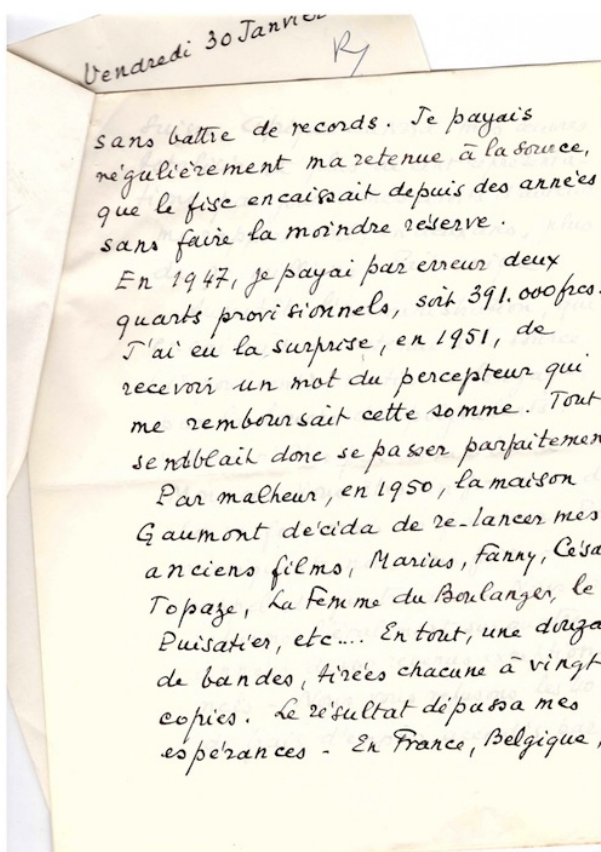 Vendredi 30 Janvier
sans battre de records. Je payais
régulièrement ma retenue à la source,
que le fisc encaissait depuis des années
sans faire la moindre réserve.
En 1947, je payai par erreur deux
quarts provisionnels, soit 391.000 frcs.
J'ai eu la surprise, en 1951, de
recevoir un mot du percepteur qui
me remboursait cette somme. Tout
semblait donc se passer parfaitemen
Par malheur, en 1950, la maison
Gaumont décida de re-lancer mes
anciens films, Marius, Fanny, Césa
Topaze, La Femme du Boulanger, le
Puisatier, etc.... En tout, une douza
de bandes, tirées chacune à vingt
copies. Le résultat dépassa mes
espérances - En France, Belgique,